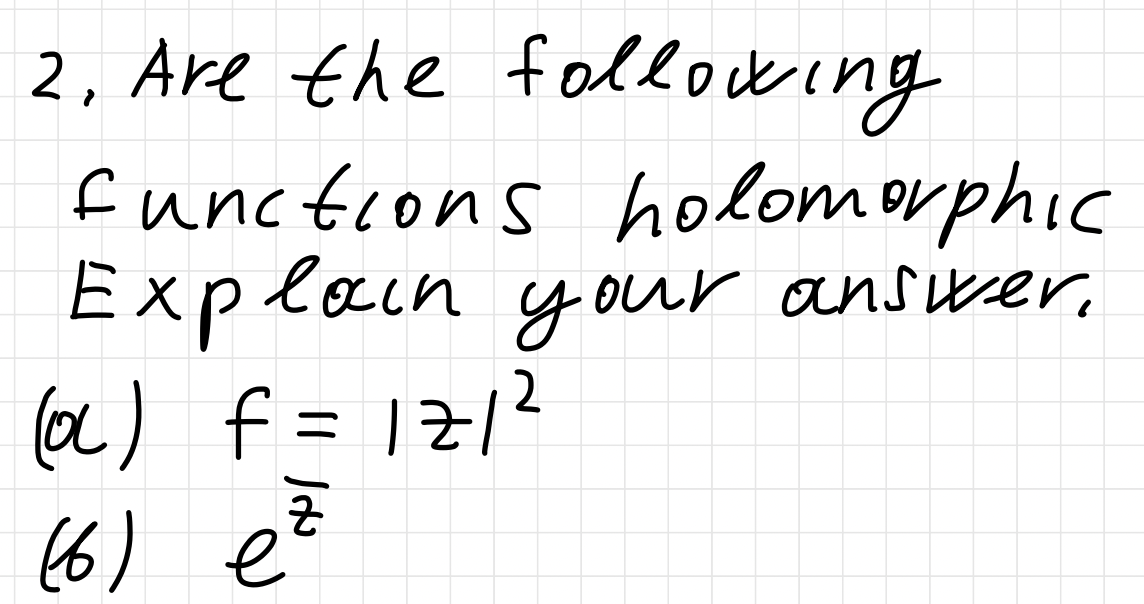 2. Are the following
functions holomorphic
Explain your answer.
(a) f = |z|²
(b) e^z̅